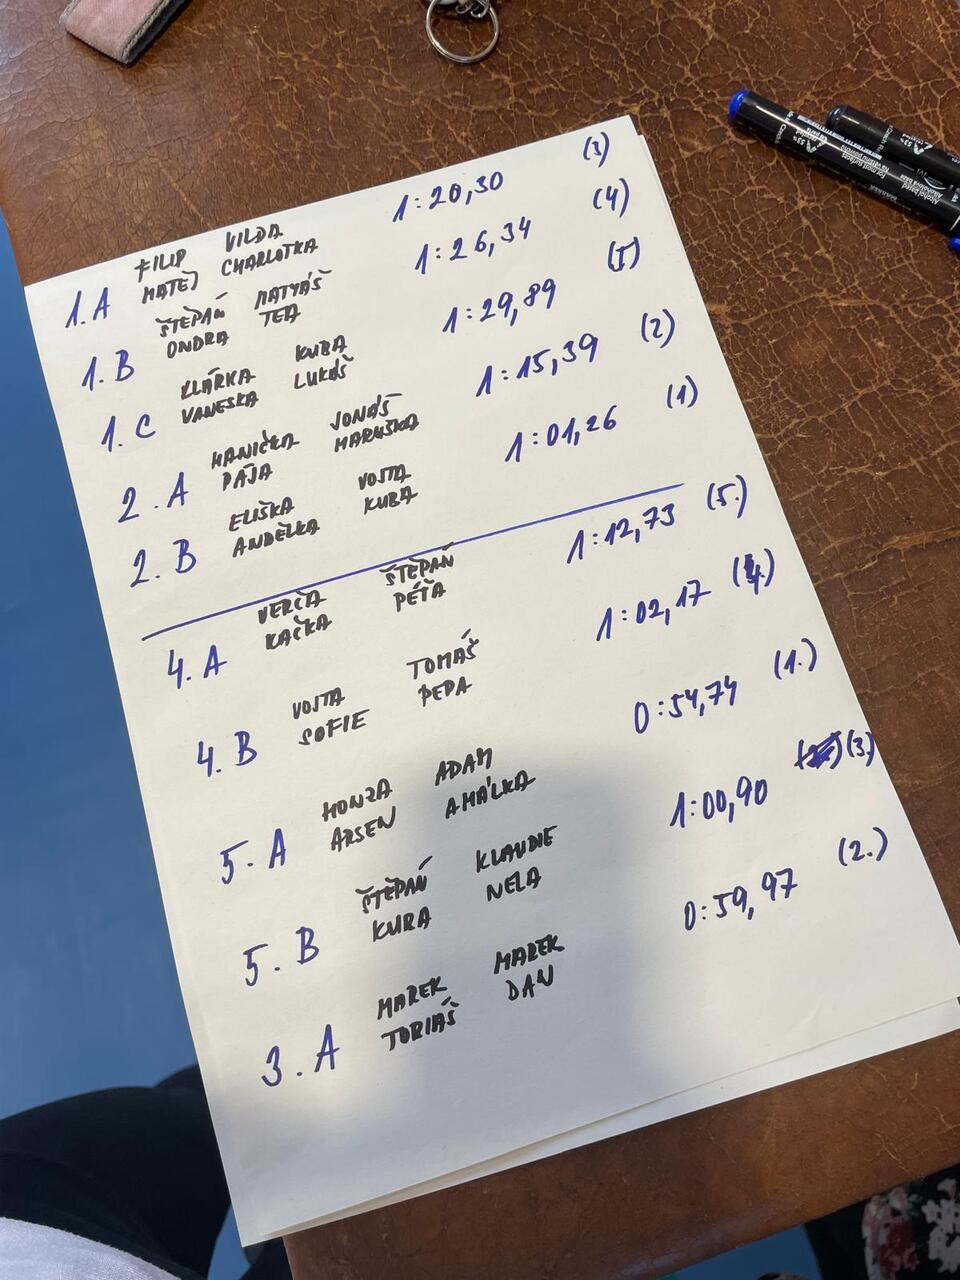 FILIP VILDA 1:20,30 (3)
1.A MATĚJ CHARLOTKA
ŠTĚPÁN MATYÁŠ 1:26,34 (4)
1.B ONDRA TEA
KLÁRKA KUBA 1:29,89 (5)
1.C VANESKA LUKÁŠ
HANIČKA JONÁŠ 1:15,39 (2)
2.A PÁJA MARUŠKA
ELIŠKA VOJTA 1:01,26 (1)
2.B ANDĚLKA KUBA
VERČA ŠTĚPÁN 1:12,73 (5.)
4.A KAČKA PÉŤA
VOJTA TOMÁŠ 1:02,17 (4.)
4.B SOFIE PEPA
HONZA ADAM 0:54,74 (1.)
5.A ARSEN AMÁLKA
ŠTĚPÁN KLAUDIE 1:00,90 (3.)
5.B KUBA NELA
MAREK MAREK 0:59,97 (2.)
3.A TOBIÁŠ DAN